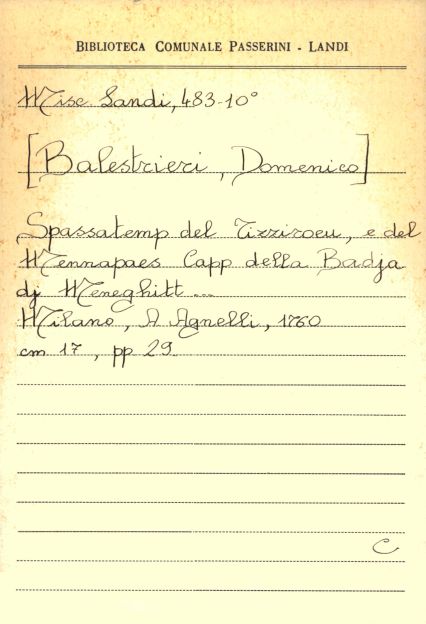 BIBLIOTECA COMUNALE PASSERINI - LANDI
Misc Landi, 483-10°
[Balestrieri, Domenico]
Spassatemp del Tizziroeu, e del
Mennapaes Capp della Badja
dj Meneghitt ...
Milano, A Agnelli, 1760
cm 17, pp 29
C